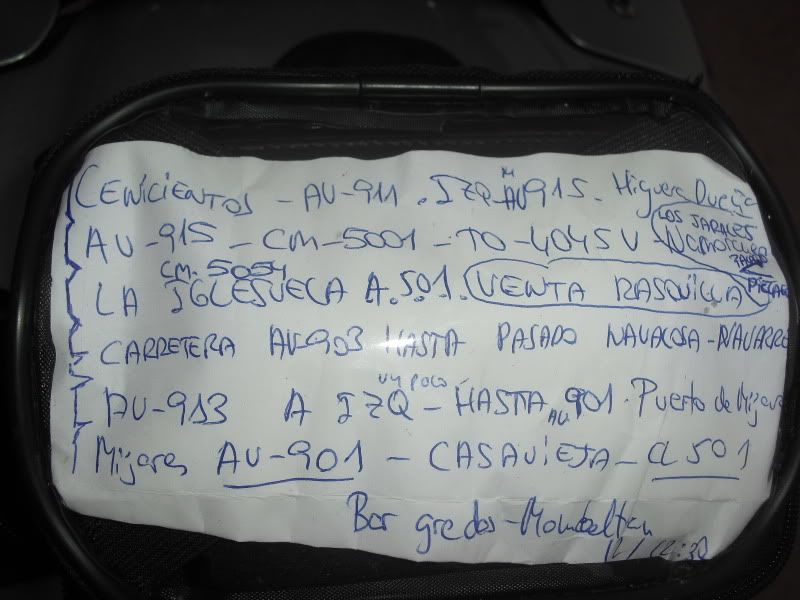 CENICIENTOS - AU-911 . IZQ - M AU 915 - Higuera Dueñas
AU-915 - CM-5001 - TO-4045 V - LOS JARALES
CM. 5054
LA IGLESUELA A.501. VENTA RASQUILLA
CARRETERA AU-903 HASTA PASADO NAVALOSA - NAVARRE
UN POCO
AU-913 A IZQ - HASTA AU 901 . Puerto de Mijares
Mijares AU-901 - CASAVIEJA - CL 501
Bar gredos - Mombeltran
12:30